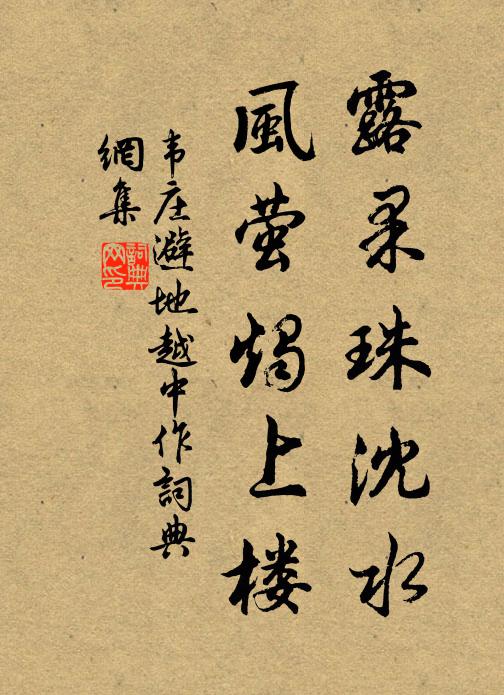 露果珠沈水
風萤燭上楼
韦庄避地越中作詞典
網集
詞典
网印